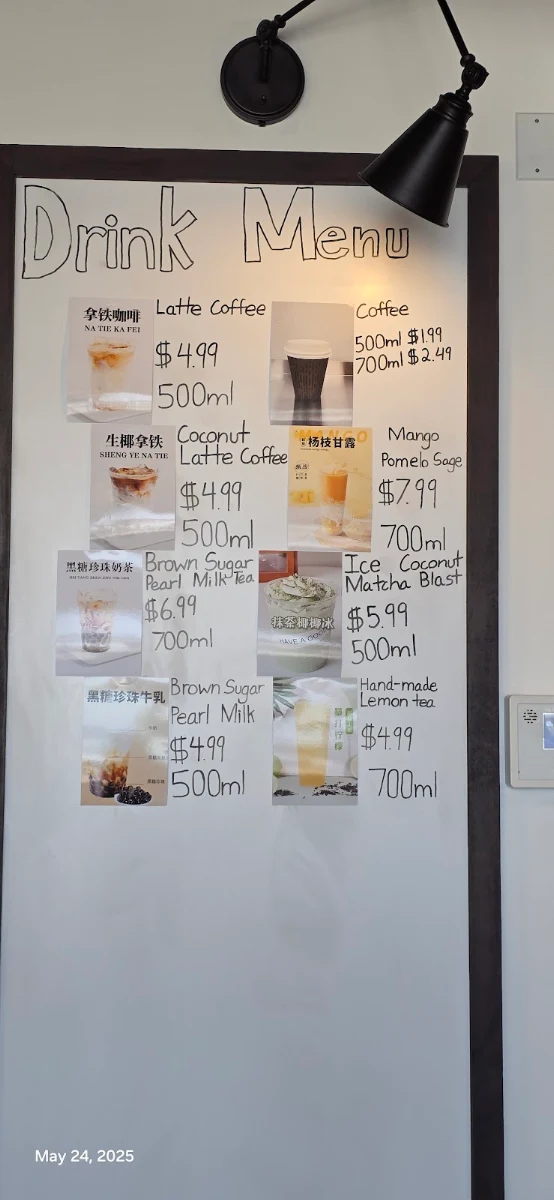 Drink Menu
拿铁咖啡
NA TIE KA FEI
Latte Coffee
$4.99
500ml
Coffee
500ml $1.99
700ml $2.49
生椰拿铁
SHENG YE NA TIE
Coconut
Latte Coffee
$4.99
500ml
MANGO
杨枝甘露
Mango
Pomelo Sago
$7.99
700ml
黑糖珍珠奶茶
Brown Sugar
Pearl Milk Tea
$6.99
700ml
抹茶椰椰冰
Ice Coconut
Matcha Blast
$5.99
500ml
黑糖珍珠牛乳
Brown Sugar
Pearl Milk
$4.99
500ml
Hand-made
Lemon tea
$4.99
700ml
May 24, 2025